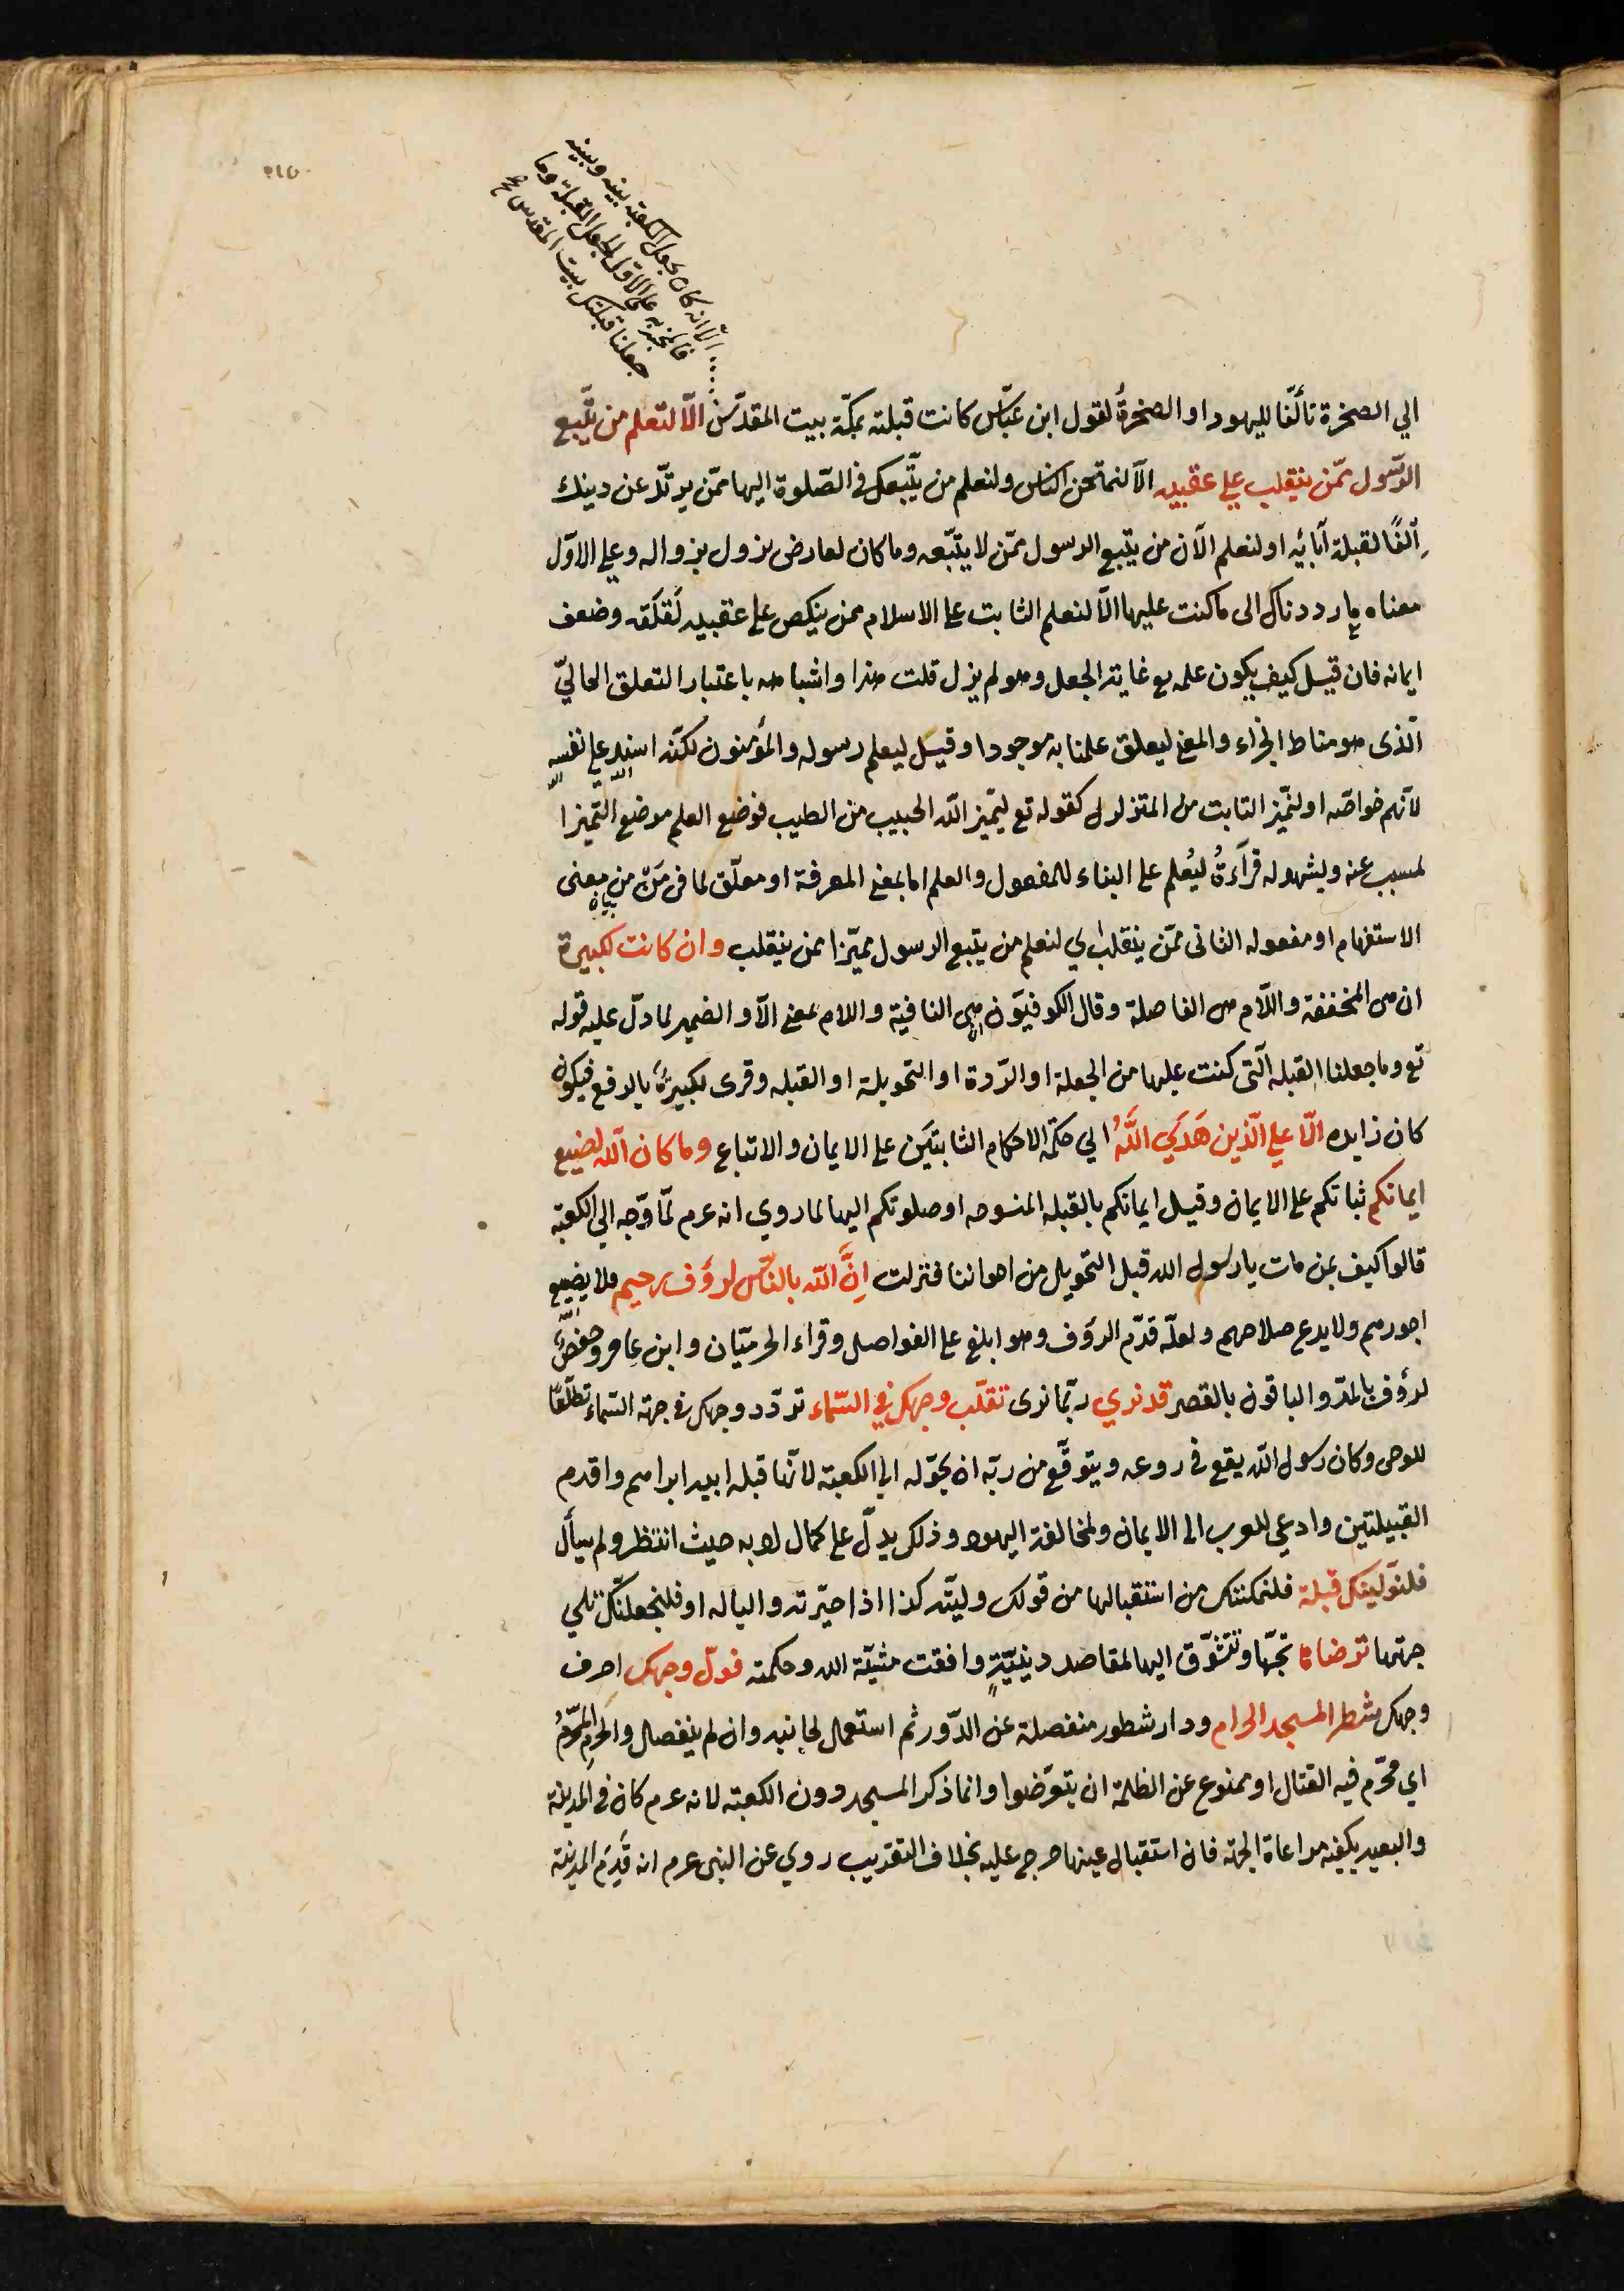 الا انه كان يجعل الكعبة بينه وبينه
فالمخبر به على الاول الجعل القبلة وما
جعلنا قبلتك بيت المقدس
الي الصخرة تألّفا لليهود او الصخرةُ لقول ابن عبّاس كانت قبلته بمكّة بيت المقدّس الّا لنعلم من يتّبع
الرّسول ممّن ينقلب علي عقبيه الّا لنمتحن الناس ولنعلم من يتّبعك في الصّلوة اليها ممّن يرتدّ عن دينك
الفًا لقبلة آبائه او لنعلم الآن من يتّبع الرسول ممّن لا يتّبعه وما كان لعارض يزول بزواله وعلي الاوّل
معناه ما رددناك الى ما كنت عليها الّا لنعلم الثابت على الاسلام ممن ينكص على عقبيه لقلقه وضعف
ايمانه فان قيل كيف يكون علمه تع غاية الجعل وهو لم يزل قلت هذا واشباهه باعتبار التعلق الحاليّ
الّذى هو مناط الجزاء والمعنى ليعلق علمنا به موجودا وقيل ليعلم رسوله والمؤمنون لكنّه اسند على نفسه
لانّهم خواصّه او لنميّز الثابت من المتزلزل كقوله تع ليميز الله الخبيث من الطيب فوضع العلم موضع التميز ا
لمسبب عنه ويشهد له قرآءةُ ليُعلم على البناء للمفعول والعلم اما بمعنى المعرفة او معلّق لما في مَنْ من معنى
الاستفهام او مفعوله الثانى ممّن ينقلب اي لنعلم من يتبع الرسول مميّزا ممن ينقلب وان كانت لكبيرة
ان هى المخففة واللّام هى الفاصلة وقال الكوفيّون هى النافية واللام بمعنى الّا والضمير لما دلّ عليه قوله
تع وما جعلنا القبلة الّتى كنت عليها من الجعلة او الرّدة او التحويلة او القبله وقرى لكبيرةٌ بالرفع فيكون
كان زايده الّا علي الّذين هَدَي اللَّهُ الي حكمة الاحكام الثابتين على الايمان والاتباع وما كان اللّه ليضيع
ايمانكم ثباتكم على الايمان وقيل ايمانكم بالقبله المنسوخه او صلوتكم اليها لما روي انه عرم لمّا وجّه الي الكعبة
قالوا كيف بمن مات يا رسول الله قبل التحويل من اخواننا فنزلت اِنَّ اللّه بالنّاس لرؤف رحيم فلا يضيع
اجورهم ولا يدع صلاحهم ولعلّه قدّم الرؤف وهو ابلغ على الفواصل وقراء الحرميّان وابن عامر وحفصٌ
لرؤف بالمدّ والباقون بالقصر قد نري ربّما نرى تقلّب وجهك في السّماء تردّد وجهك في جهة السّماء تطلّعًا
للوحى وكان رسول اللّه يقع في روعه ويتوقّع من ربّه ان يحوّله الي الكعبة لانّها قبلة ابيه ابراهيم واقدم
القبيلتين وادعى للعرب الى الايمان ولمخالفة اليهود وذلك يدلّ على كمال ادبه حيث انتظر ولم يسأل
فلنولّينك قبلة فلنمكننّك من استقبالها من قولك وليته كذا اذا صيّرته واليا له او فلنجعلنّك تلي
جهتها ترضاها تحبّها وتتشوّق اليها لمقاصد دينيّةٍ وافقت مشيّة الله وحكمته فولّ وجهك اصرف
وجهك شطر المسجد الحرام ودار شطور منفصلة عن الدّور ثم استعمال لجانبه وان لم ينفصال والحرام المحرّمُ
اي محرّم فيه القتال او ممنوع عن الظلمة ان يتعرّضوا وانما ذكر المسجد دون الكعبة لانه عرم كان في المدينة
والبعيد يكفيه مراعاة الجهة فان استقبال عينها حرج عليه بخلاف القريب روي عن النبى عرم انه قَدِم المدينة